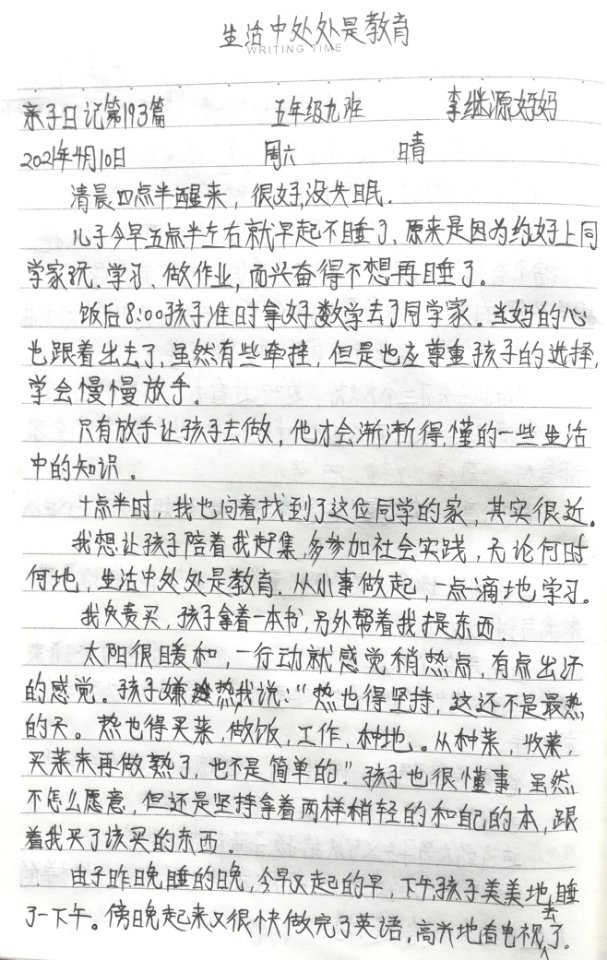 生活中处处是教育
WRITING TIME
亲子日记第193篇 五年级九班 李继源妈妈
2021年4月10日 周六 晴
清晨四点半醒来，很好，没失眠.
儿子今早五点半左右就早起不睡了，原来是因为约好上同
学家玩、学习、做作业，而兴奋得不想再睡了。
饭后8:00孩子准时拿好数学去了同学家。当妈的心
也跟着出去了，虽然有些牵挂，但是也应尊重孩子的选择，
学会慢慢放手.
只有放手让孩子去做，他才会渐渐得懂的一些生活
中的知识.
十点半时，我也问着，找到了这位同学的家，其实很近。
我想让孩子陪着我赶集，多参加社会实践，无论何时
何地，生活中处处是教育.从小事做起，一点一滴地学习。
我负责买，孩子拿着一本书，另外帮着我提东西.
太阳很暖和，一行动就感觉稍热点，有点出汗
的感觉。孩子嫌热我说：“热也得坚持，这还不是最热
的天。热也得买菜，做饭，工作、种地。从种菜，收菜，
买菜来再做熟了，也不是简单的.”孩子也很懂事，虽然
不怎么愿意，但还是坚持拿着两样稍轻的和自己的本，跟
着我买了该买的东西.
由于昨晚睡的晚，今早又起的早，下午孩子美美地睡
了一下午。傍晚起来又很快做完了英语，高兴地看电视去了.